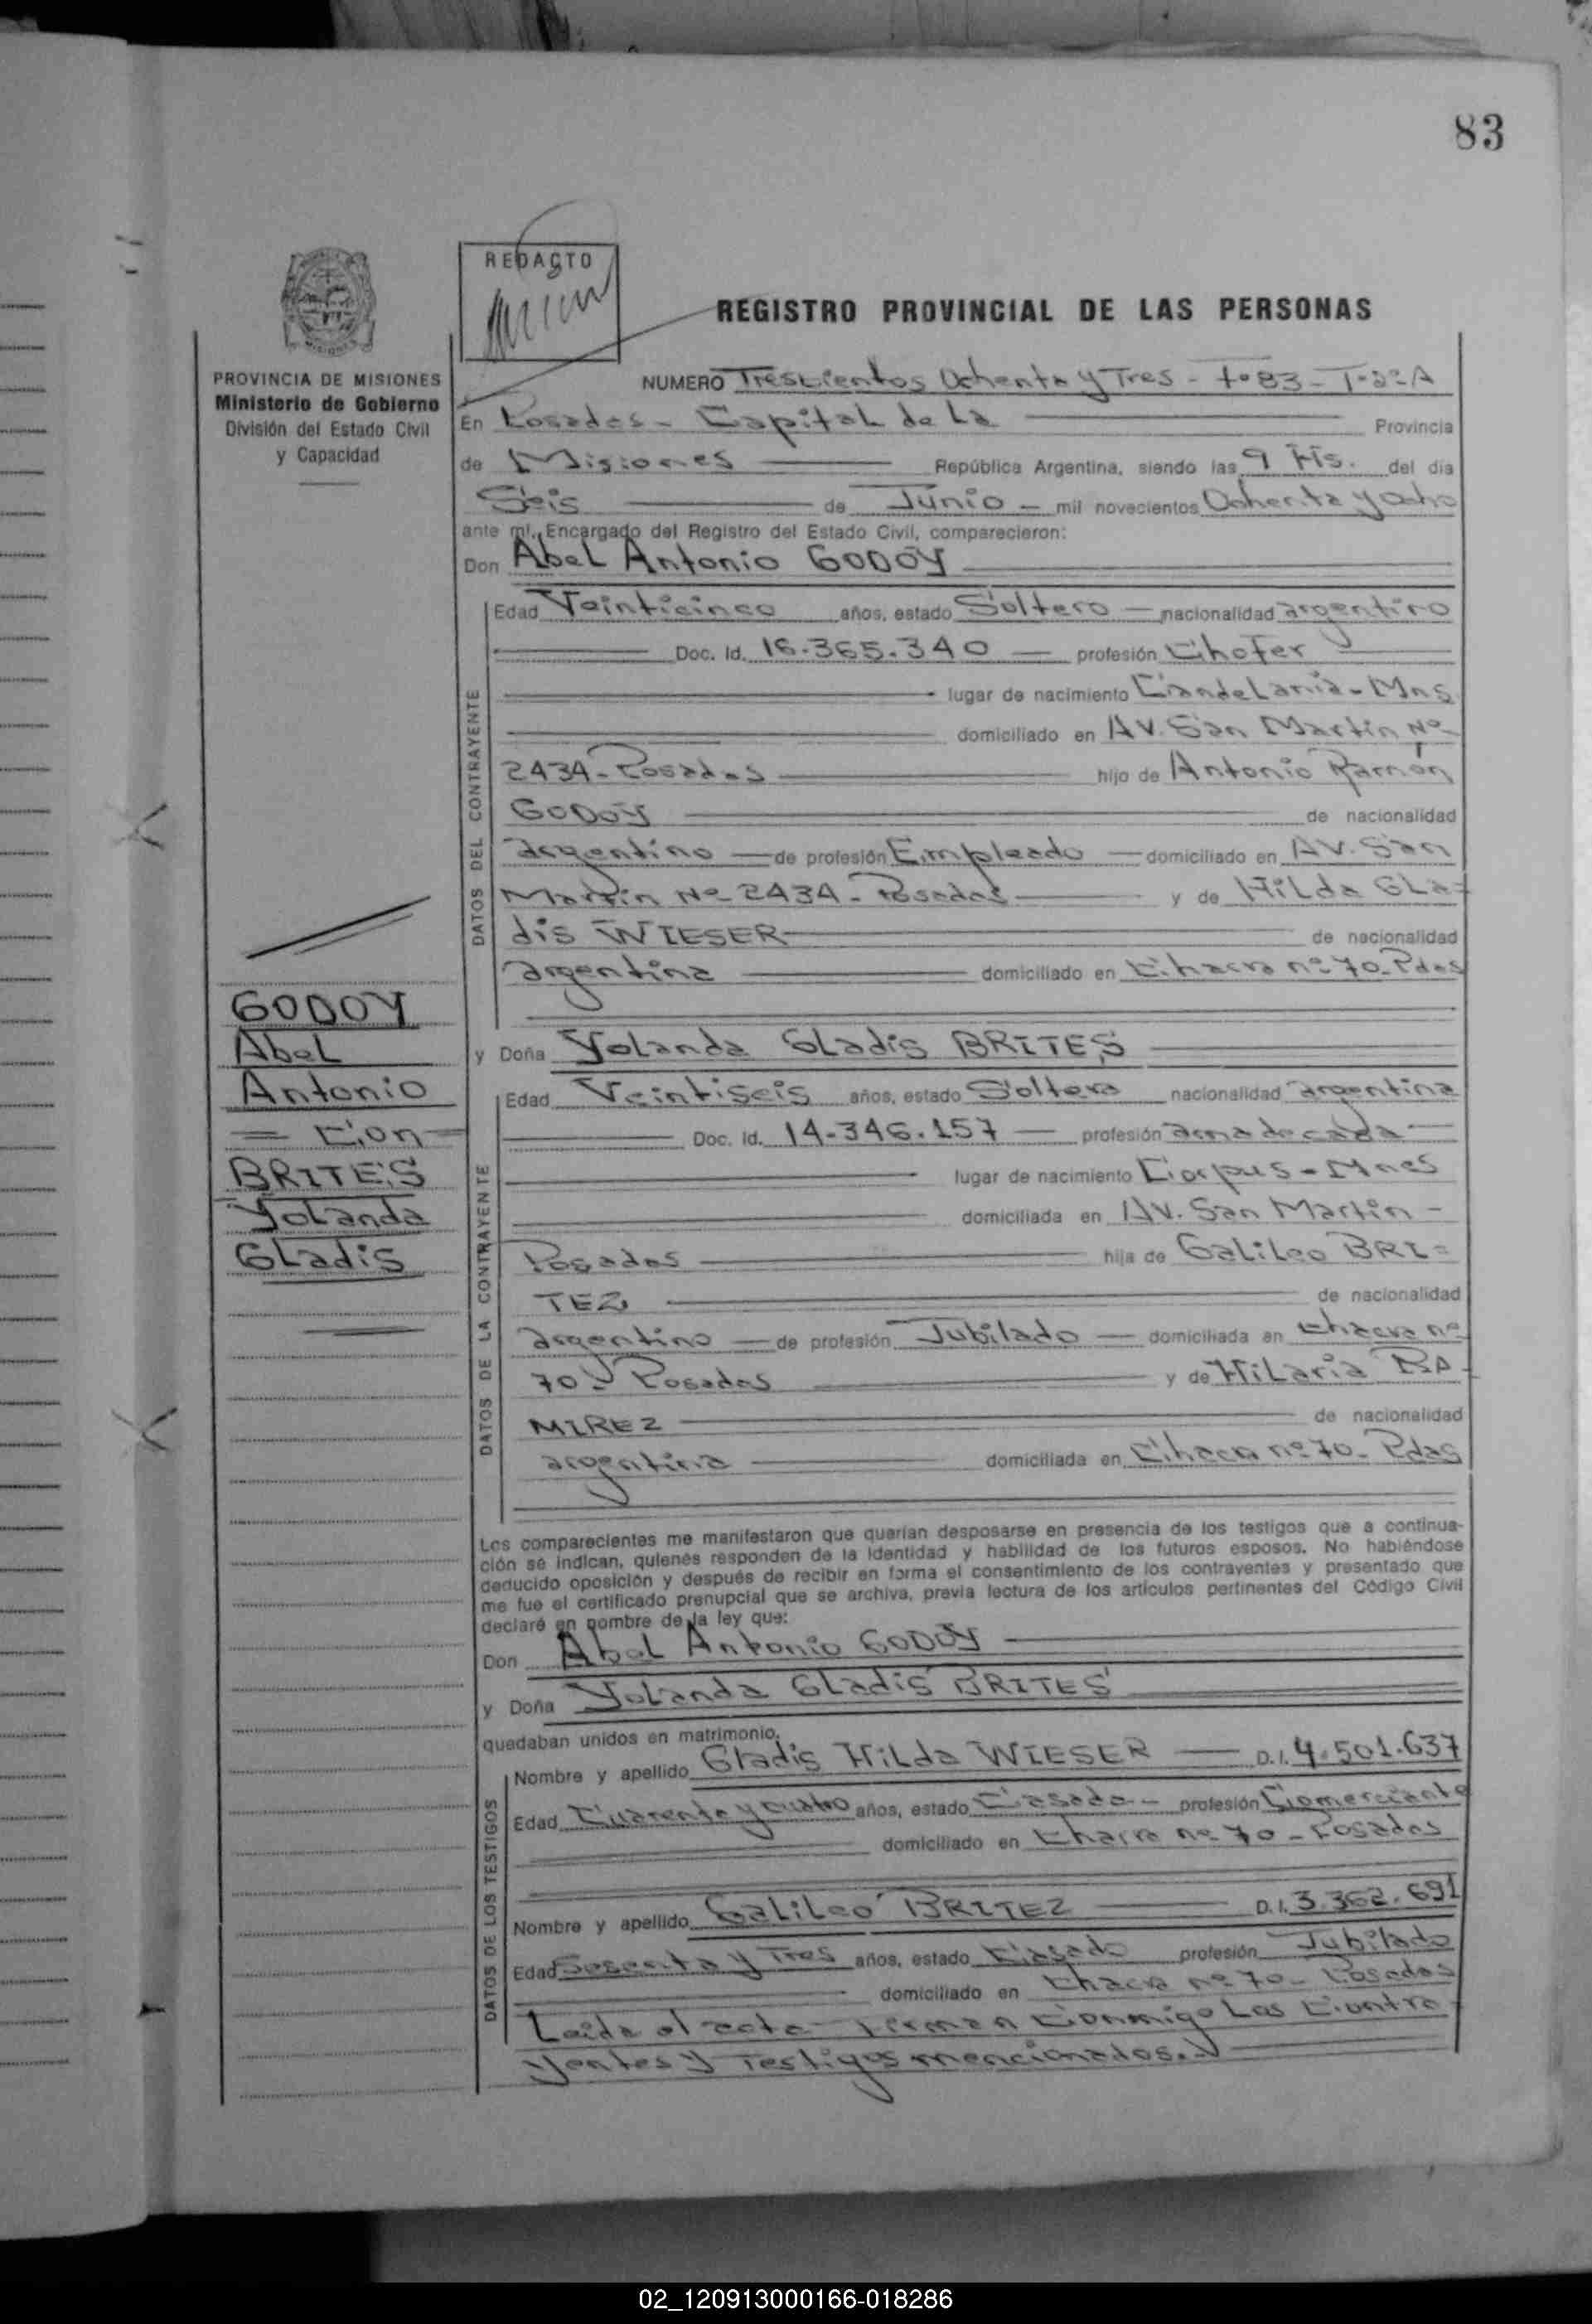 83
REDACTO
REGISTRO PROVINCIAL DE LAS PERSONAS
PROVINCIA DE MISIONES
Ministerio de Gobierno
División del Estado Civil
y Capacidad
NUMERO Trescientos Ochenta y Tres - Fº 83 - Tº 2º A
En Posadas - Capital de La Provincia
de Misiones República Argentina, siendo las 9 Hs. del día
Seis de Junio - mil novecientos Ochenta y ocho
ante mí, Encargado del Registro del Estado Civil, comparecieron:
Don Abel Antonio GODOY
DATOS DEL CONTRAYENTE
Edad Veinticinco años, estado Soltero - nacionalidad argentino
Doc. Id. 16.365.340 - profesión Chofer
lugar de nacimiento Candelaria - Mns
domiciliado en AV. San Martín Nº
2434 - Posadas hijo de Antonio Ramón
GODOY de nacionalidad
argentino - de profesión Empleado - domiciliado en AV. San
Martín Nº 2434 - Posadas y de HiLda GLa=
dis WIESER de nacionalidad
argentina domiciliado en Chacra nº 70 - Pdas
GODOY
Abel
Antonio
= Con =
BRITES
Yolanda
Gladis
y Doña Yolanda Gladis BRITES
DATOS DE LA CONTRAYENTE
Edad Veintiseis años, estado Soltera nacionalidad argentina
Doc. Id. 14.346.157 - profesión ama de casa
lugar de nacimiento Corpus - Mnes
domiciliada en AV. San Martín -
Posadas hija de Galileo BRI=
TEZ de nacionalidad
argentino - de profesión Jubilado - domiciliada en Chacra nº
70 - Posadas y de Hilaria RA-
MIREZ de nacionalidad
argentina domiciliada en Chacra nº 70 - Pdas
Los comparecientes me manifestaron que querían desposarse en presencia de los testigos que a continua-
ción se indican, quienes responden de la identidad y habilidad de los futuros esposos. No habiéndose
deducido oposición y después de recibir en forma el consentimiento de los contrayentes y presentado que
me fue el certificado prenupcial que se archiva, previa lectura de los artículos pertinentes del Código Civil
declaré en nombre de la ley que:
Don Abel Antonio GODOY
y Doña Yolanda Gladis BRITES
quedaban unidos en matrimonio.
DATOS DE LOS TESTIGOS
Nombre y apellido Gladis Hilda WIESER D.I. 4.501.637
Edad Cuarenta y cuatro años, estado Casada - profesión Comerciante
domiciliado en Chacra nº 70 - Posadas
Nombre y apellido Galileo BRITEZ D.I. 3.362.691
Edad Sesenta y Tres años, estado Casado profesión Jubilado
domiciliado en Chacra nº 70 - Posadas
Leida el acta firman Conmigo Los Contra
yentes y Testigos mencionados.
02_120913000166-018286